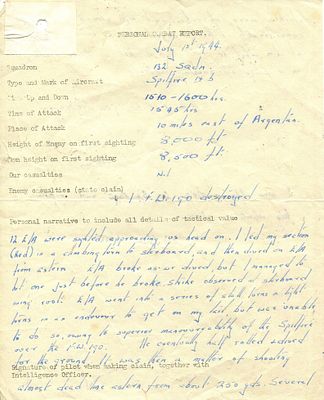 PERSONAL COMBAT REPORT.
July 1st 1944.
Squadron 132 Sqdn.
Type and Mark of Aircraft Spitfire IX b
Time Up and Down 1510 - 1600 hrs.
Time of Attack 1545 hrs.
Place of Attack 10 miles east of Argentan.
Height of Enemy on first sighting 8,000 ft.
Own height on first sighting 8,500 ft.
Our casualties Nil
Enemy casualties (state claim)
1 F.W. 190 destroyed
Personal narrative to include all details of tactical value
12 E/A were sighted approaching us head on. I led my section
(Red) in a climbing turn to starboard, and then dived on E/A
from astern. E/A broke as we dived, but I managed to
hit one just before he broke. Strike observed on starboard
wing root. E/A went into a series of stall turns & tight
turns in an endeavour to get on my tail, but was unable
to do so, owing to superior manoeuvrability of the Spitfire
over the F.W. 190. He eventually half rolled & dived
for the ground. It was then a matter of shooting
Signature of pilot when making claim, together with
Intelligence Officer.
almost dead line astern from about 250 yds. Several